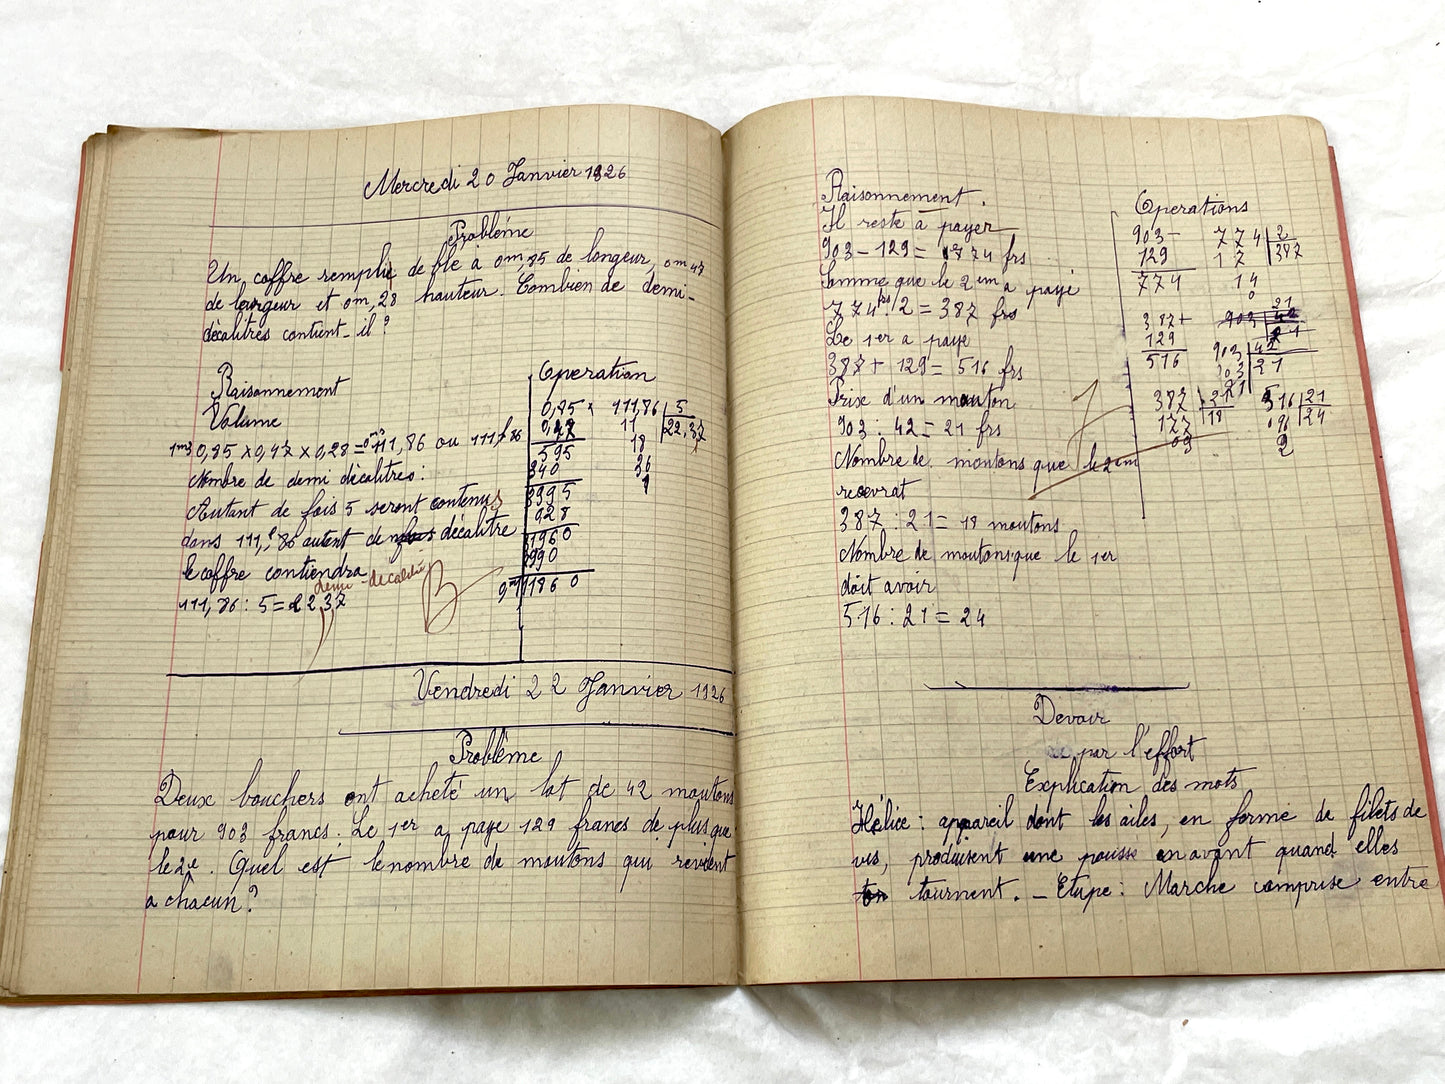 Mercredi 20 Janvier 1926
Problème
Un coffre remplie de blé à 0m,85 de longeur, 0m47
de largeur et 0m,28 hauteur. Combien de demi-
décalitres contient-il?
Raisonnement
Volume
1m3 0,85 x 0,47 x 0,28 = 0m3 111,86 ou 111,86
Nombre de demi décalitres:
Autant de fois 5 seront contenus
dans 111,l86 autent de décalitre
le coffre contiendra
demi-décalitre
111,86 : 5 = 22 37
B
Operation
0,85 x 111,86 | 5
0,47 11 | 22,37
595 18
340 36
3995 1
928
31960
3990
9m111860
Vendredi 22 Janvier 1926
Problème
Deux bouchers ont acheté un lot de 42 moutons
pour 903 francs. Le 1er a paye 129 francs de plus que
le 2e. Quel est le nombre de moutons qui revient
a chacun?
Raisonnement.
Il reste à payer
903 - 129 = 774 frs
Somme que le 2em a payé
774frs : 2 = 387 frs
Le 1er a paye
387 + 129 = 516 frs
Prix d'un mouton
903 : 42 = 21 frs
Nombre de moutons que le 2em
recevrat
387 : 21 = 18 moutons
Nombre de moutons que le 1er
doit avoir
516 : 21 = 24
Operations
903 - 774 | 2
129 17 | 387
774 14
0
387 + 903 | 42
129 21
516 903 | 42
21
387 | 21 516 | 21
177 | 18 096 | 24
09 2
Devoir
par l'effort
Explication des mots
Hélice : appareil dont les ailes, en forme de filets de
vis, produisent une pousse en avant quand elles
tournent. - Etape : Marche comprise entre